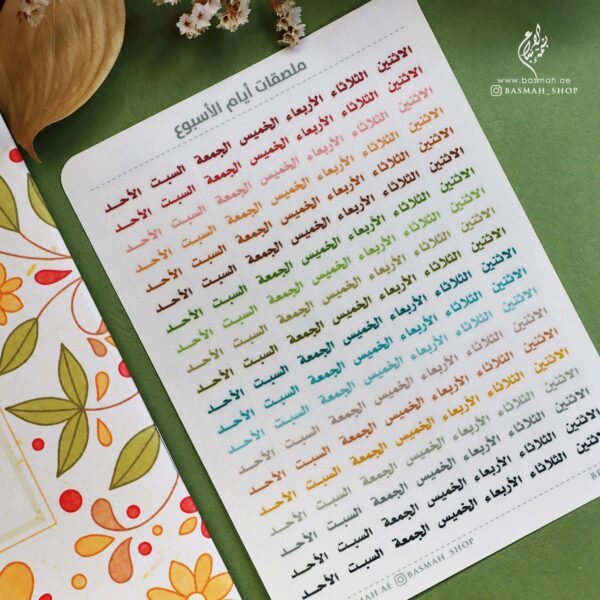 بسمة الأيام
www.basmah.ae
BASMAH_SHOP
ملصقات أيام الأسبوع
الاثنين الثلاثاء الأربعاء الخميس الجمعة السبت الأحد
الاثنين الثلاثاء الأربعاء الخميس الجمعة السبت الأحد
الاثنين الثلاثاء الأربعاء الخميس الجمعة السبت الأحد
الاثنين الثلاثاء الأربعاء الخميس الجمعة السبت الأحد
الاثنين الثلاثاء الأربعاء الخميس الجمعة السبت الأحد
الاثنين الثلاثاء الأربعاء الخميس الجمعة السبت الأحد
الاثنين الثلاثاء الأربعاء الخميس الجمعة السبت الأحد
الاثنين الثلاثاء الأربعاء الخميس الجمعة السبت الأحد
الاثنين الثلاثاء الأربعاء الخميس الجمعة السبت الأحد
الاثنين الثلاثاء الأربعاء الخميس الجمعة السبت الأحد
الاثنين الثلاثاء الأربعاء الخميس الجمعة السبت الأحد
الاثنين الثلاثاء الأربعاء الخميس الجمعة السبت الأحد
الاثنين الثلاثاء الأربعاء الخميس الجمعة السبت الأحد
الاثنين الثلاثاء الأربعاء الخميس الجمعة السبت الأحد
الاثنين الثلاثاء الأربعاء الخميس الجمعة السبت الأحد
الاثنين الثلاثاء الأربعاء الخميس الجمعة السبت الأحد
الاثنين الثلاثاء الأربعاء الخميس الجمعة السبت الأحد
الاثنين الثلاثاء الأربعاء الخميس الجمعة السبت الأحد
MAH.AE BASMAH_SHOP